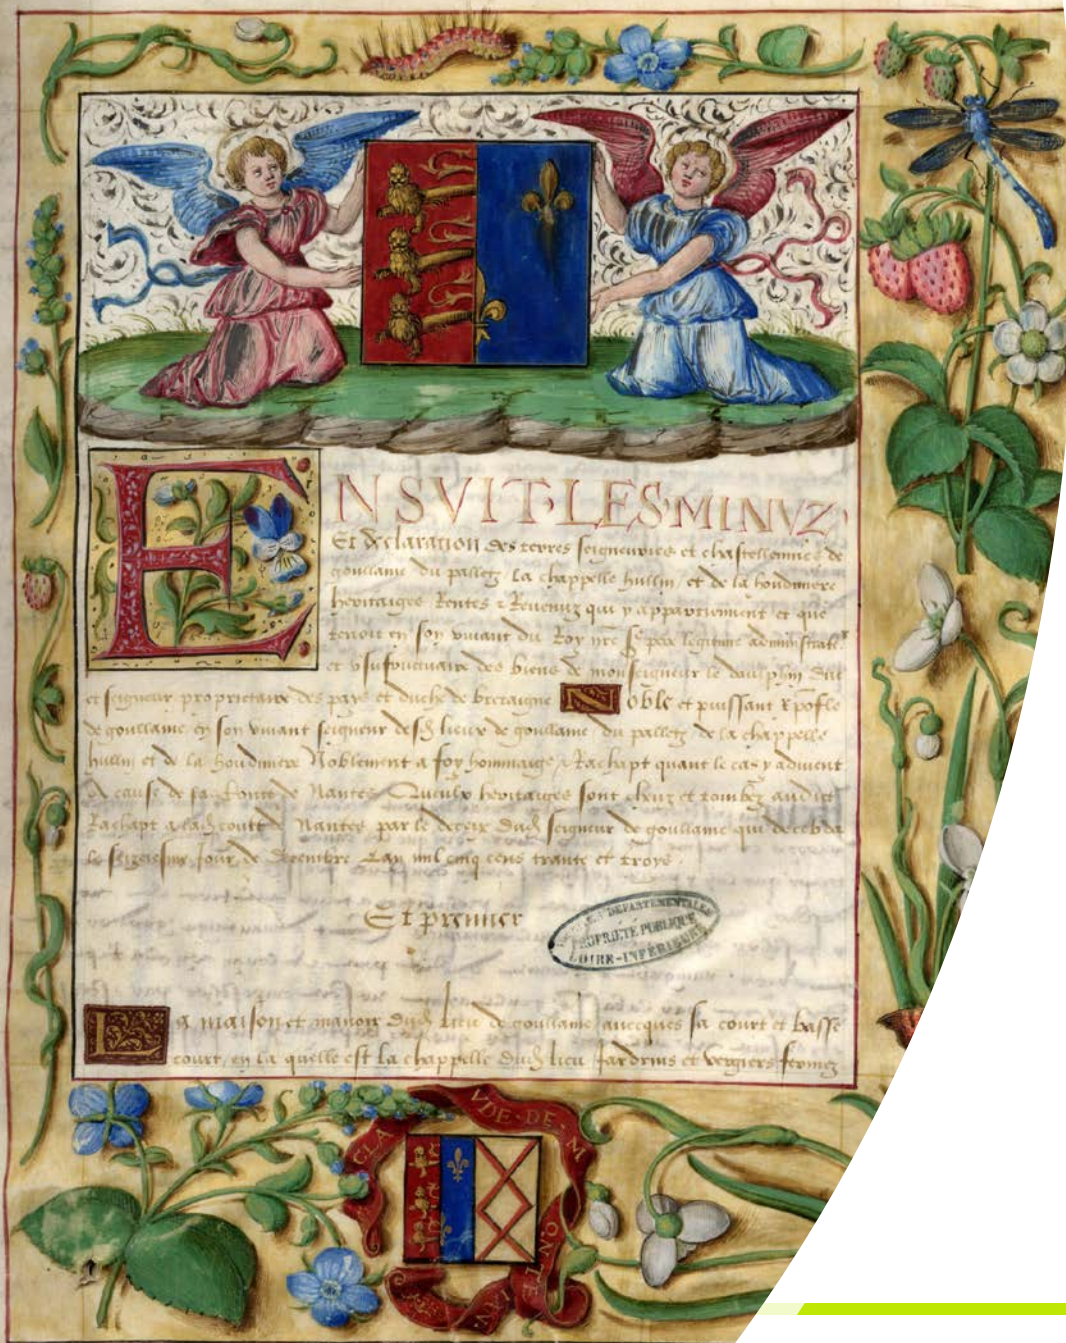 ENSVIT·LES·MINVZ
Et declaration des terres seigneuries et chastellennies de
goullaine du palletz La chappelle hullin et de la houdiniere
heritaiges Rentes & Revenuz qui y appartiennent et que
tenoit en son vivant du Roy nre Sr pere legitime administrateur
et usufructuaire des biens de monseigneur le daulphin duc
et seigneur proprietaire des pays et duche de bretaigne Noble et puissant Xpofle
de goullaine en son vivant seigneur desd lieux de goullaine du palletz de la chappelle
hullin et de la houdiniere Noblement a foy hommaige & Rachapt quant le cas y advient
A cause de sa Conte de Nantes Queulx heritaiges sont cheuz et tombez audict
Rachapt a lad court de Nantes par le deceix dud seigneur de goullaine qui deceda
le seziesme jour de Decembre Lan mil cinq cens trante et troys
Et premier
DEPARTEMENTALES
PROPRIETE PUBLIQUE
LOIRE-INFERIEURE
La maison et manoir dud Lieu de goullaine avecques sa court et basse
court, en la quelle est la chappelle dud lieu Jardrins et vergiers fermez
CLA
VDE·DE·M
ONTE
IAN